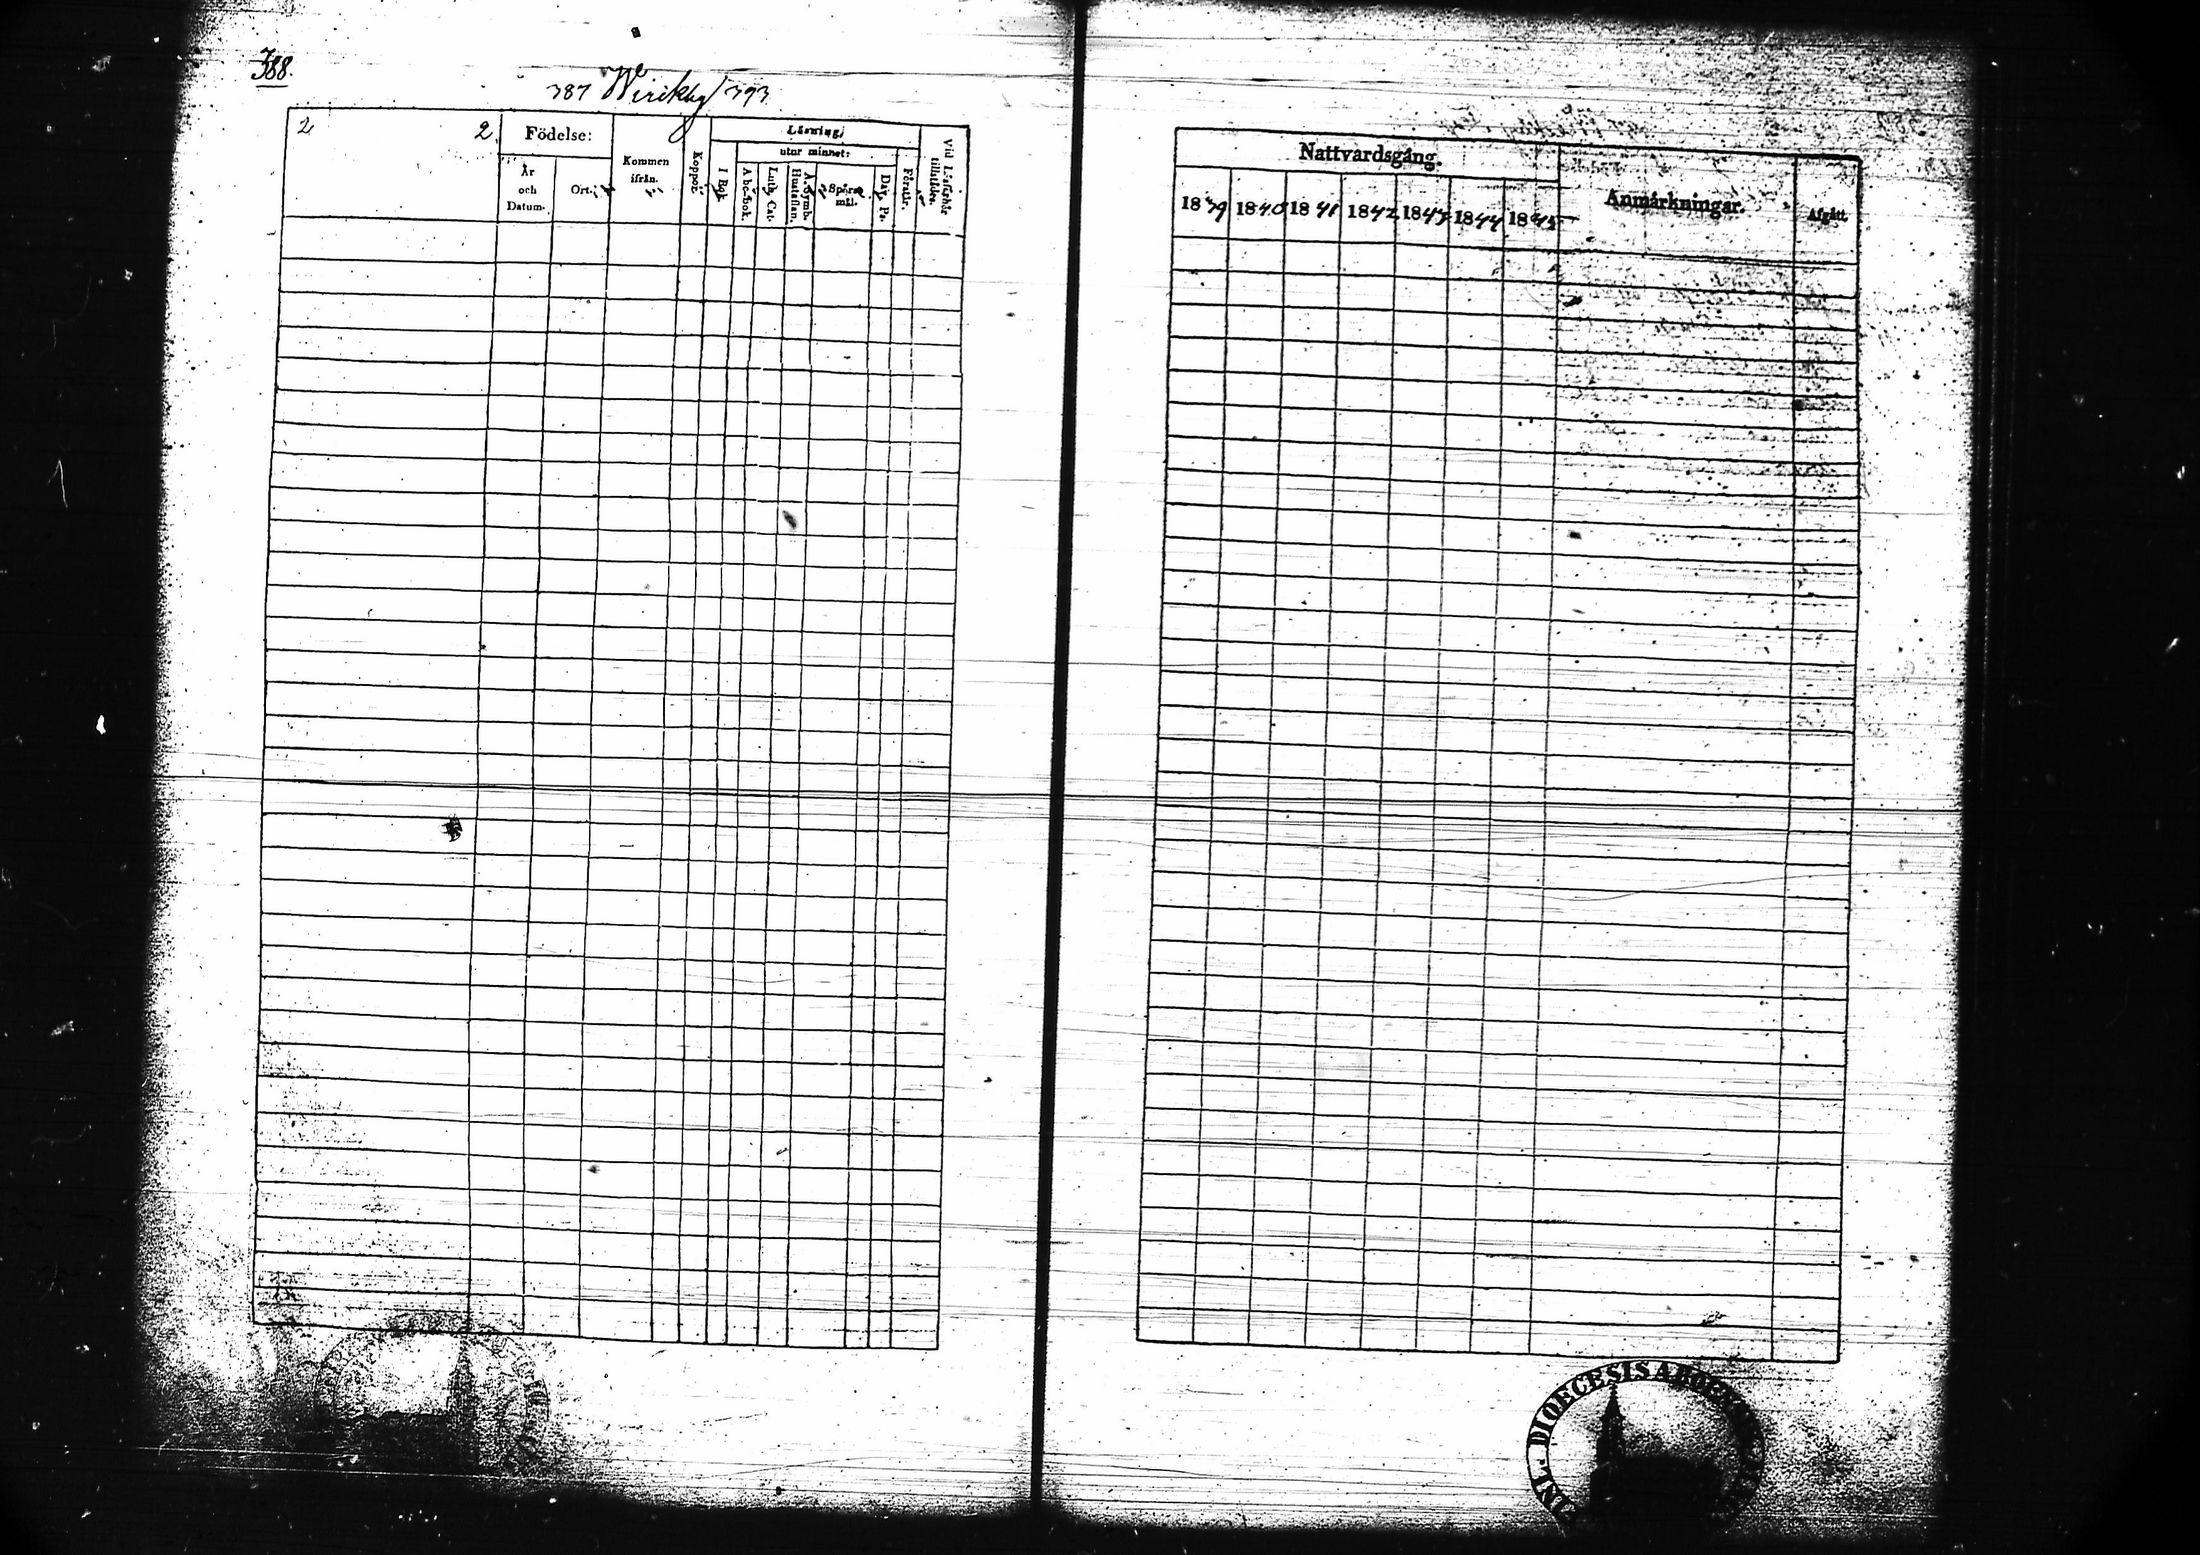 388.
387 Wirikby 393
2 2 Födelse:
År och Datum.
Ort.
Kommen ifrån.
Koppor.
Läsning,
utur minnet:
I Bok
Abc-bok.
Luth. Cat.
A. Symb. Hustaflan.
Spörsmål.
Dav. Ps.
Förstår.
Vid Läseförhör tillstädes.
Nattvardsgång.
1839 1840 1841 1842 1843 1844 1845
Anmärkningar.
Afgått.
DIOECESIS ABOENSIS